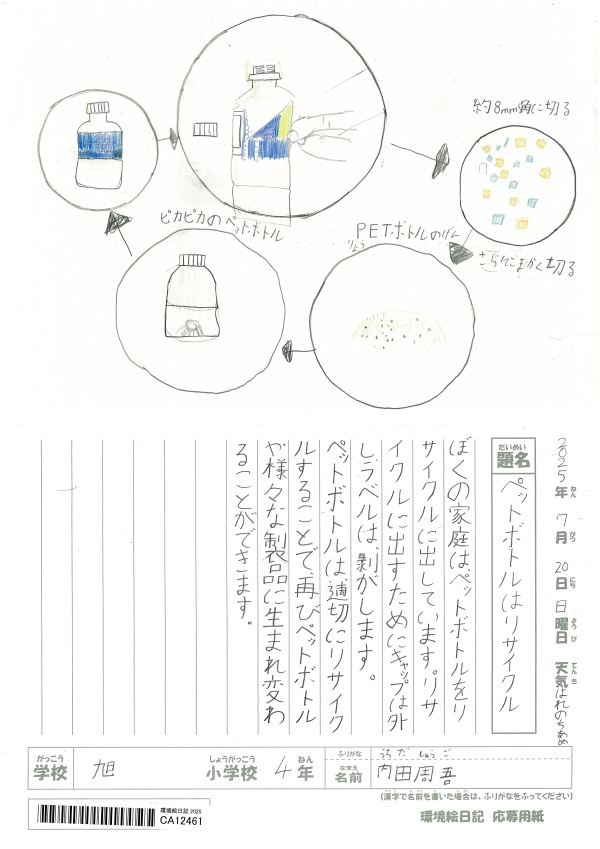 約8mm角に切る
ピカピカのペットボトル
PETボトルのげん
りょう
さらにこまかく切る
2025年 7月 20日 日曜日 天気はれのちあめ
ねん がつ にち ようび てんき
だいめい
題名 ペットボトルはリサイクル
ぼくの家庭は、ペットボトルをリ
サイクルに出しています。リサ
イクルに出すためにキャップは外
し、ラベルは、剝がします。
ペットボトルは、適切にリサイク
ルすることで、再びペットボトル
や様々な製品に生まれ変わ
ることができます。
がっこう しょうがっこう ねん ふりがな うちだ しゅうご
学校 旭 小学校 4年 なまえ 名前 内田周吾
(漢字で名前を書いた場合は、ふりがなをふってください)
環境絵日記 2025
CA12461
環境絵日記 応募用紙